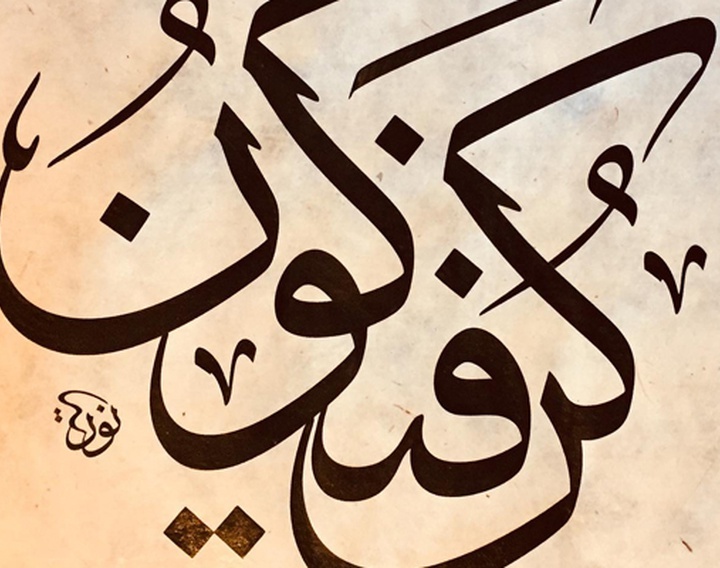 كُن فيكُون
نورة